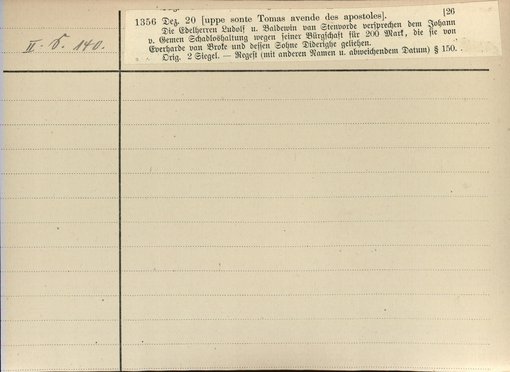 II. S. 140.
1356 Dez. 20 [uppe sonte Tomas avende des apostoles]. [26
Die Edelherren Ludolf u. Baldewin van Stenvorde versprechen dem Johann
v. Gemen Schadloshaltung wegen seiner Bürgschaft für 200 Mark, die sie von
Everharde van Broke und dessen Sohne Diderighe geliehen.
Orig. 2 Siegel. — Regest (mit anderen Namen u. abweichendem Datum) § 150.